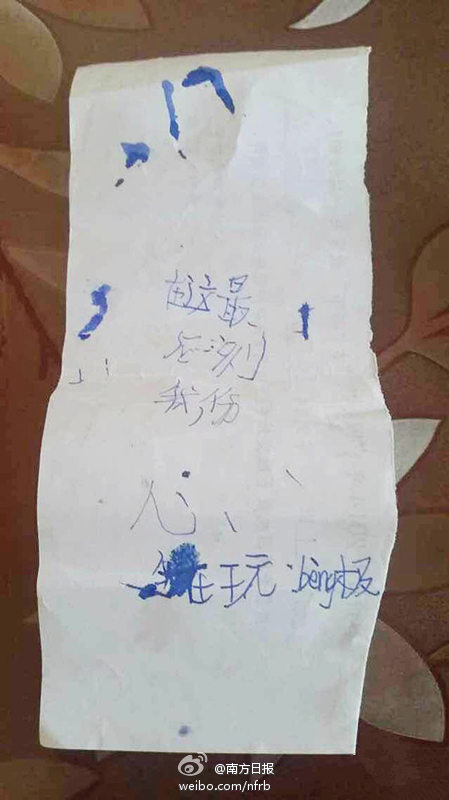 在这最
后刻
我伤
心、、
在玩bèng极
@南方日报
weibo.com/nfrb